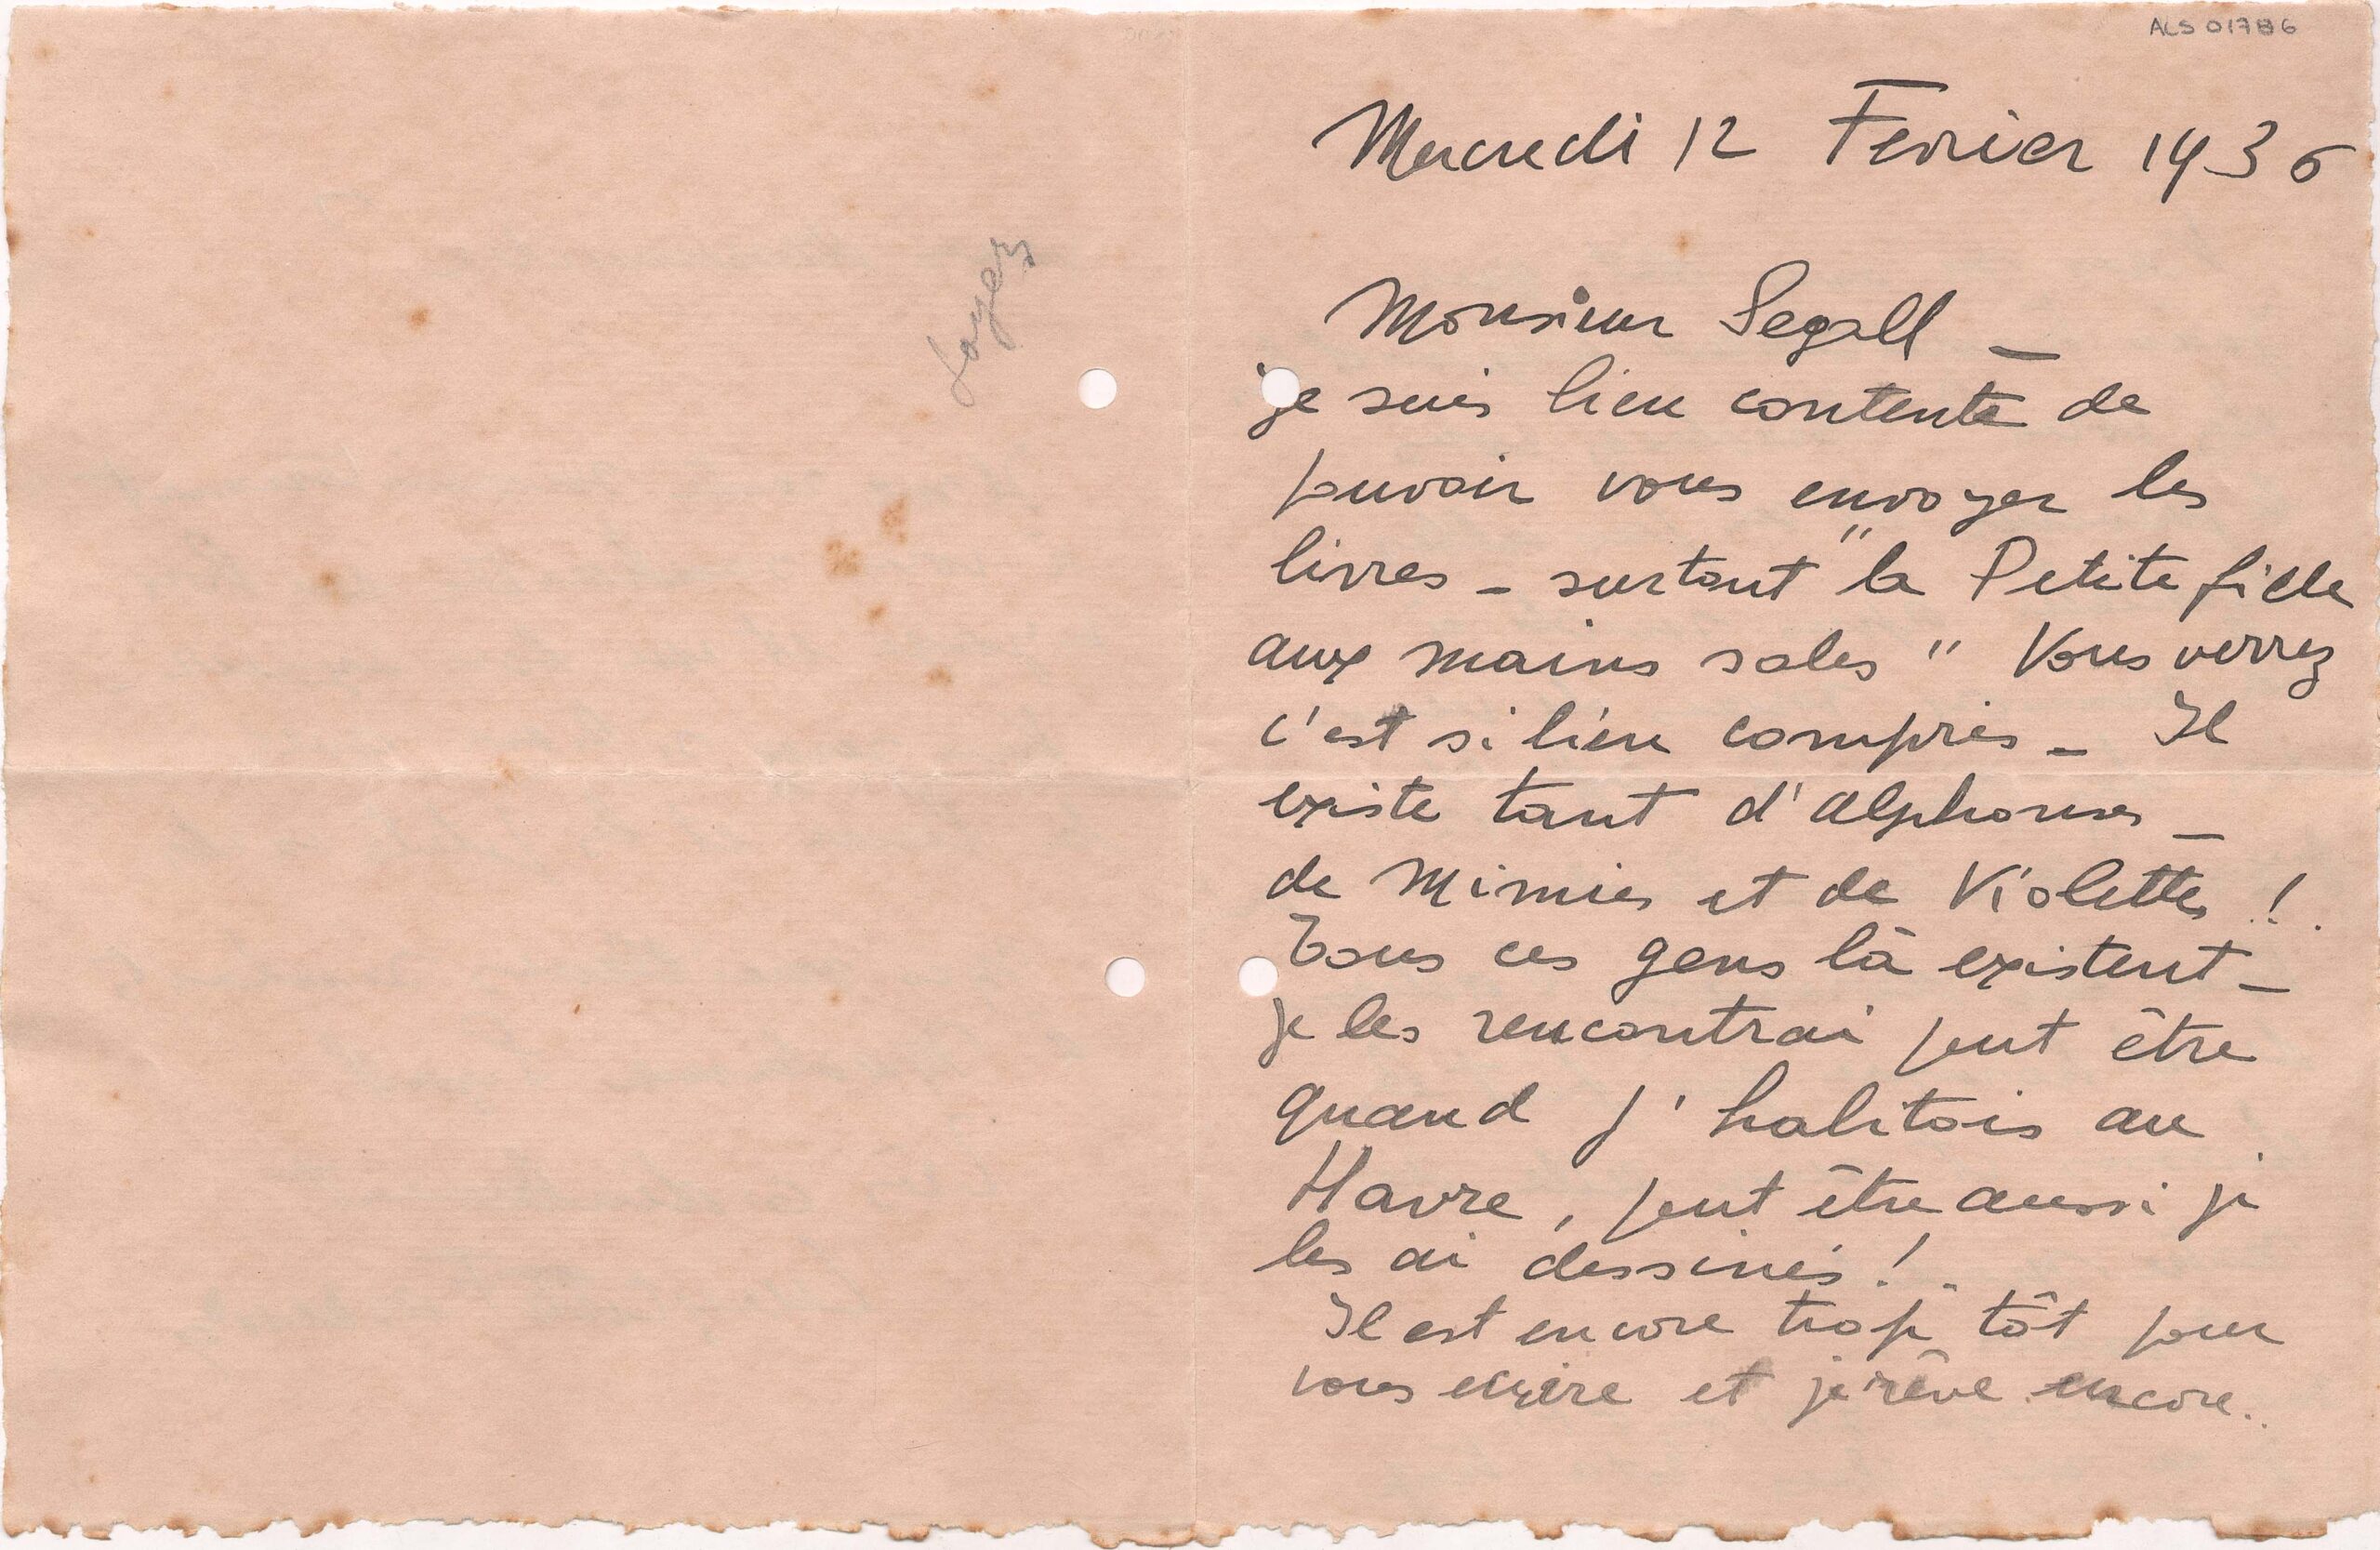 ALS 01786
Mercredi 12 Fevrier 1936
Monsieur Segall _
je suis bien contente de
pouvoir vous envoyer les
livres - surtout "la Petite fille
aux mains sales" Vous verrez
c'est si bien compris - Il
existe tant d'alphonses _
de Mimies et de Violettes !
Tous ces gens là existent _
je les rencontrai peut être
quand j'habitais au
Havre, peut être aussi je
les ai dessinés !
Il est encore trop tôt pour
vous ecrire et je rêve encore..